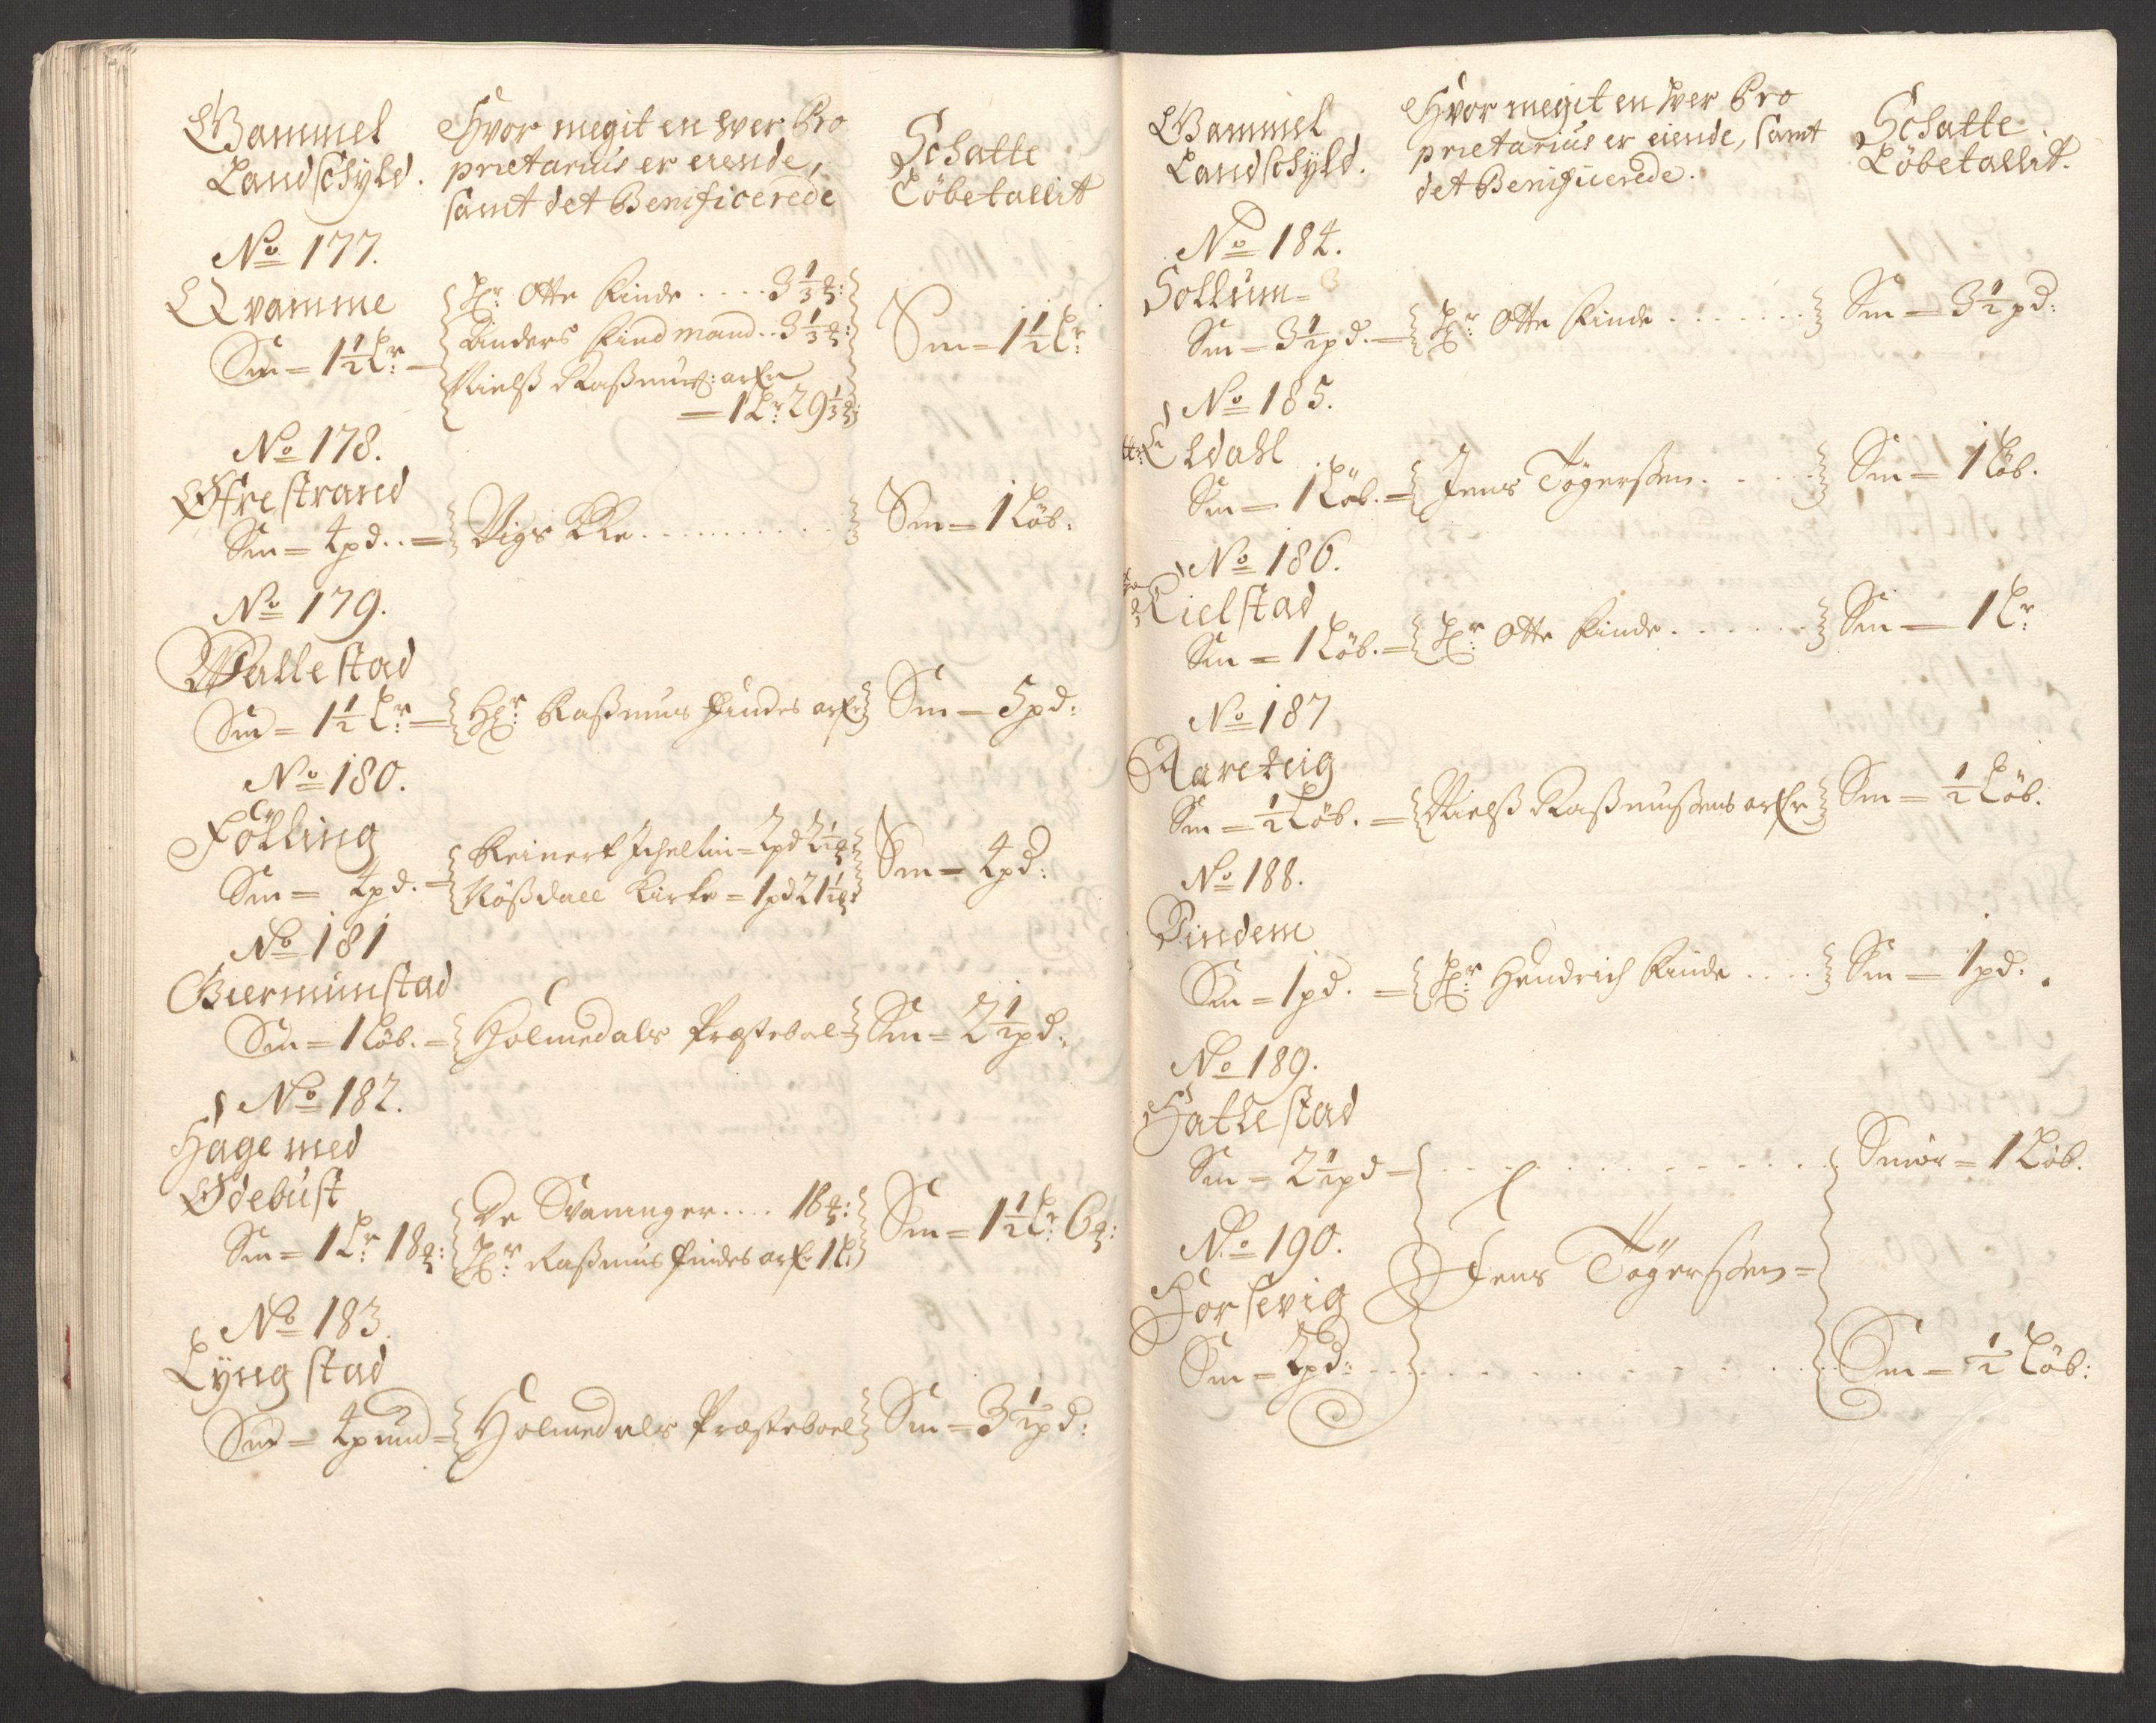 Gammel
Landschyld.
Hvor megit en hver Pro
prietarius er eiende,
samt det Benificerede
Schatte
Löbetallit
No 177.
Qvamme
Sm = 1 1/2 Lr:
Hr: Otte Finde .... 3 1/3 ℔:
Anders Findmand .. 3 1/3 ℔:
Nielß Raßmuß: arfr
= 1 Lr: 29 1/3 ℔:
Sm = 1 1/2 Lr:
No 178.
Øfrestrand
Sm = 4 pd. =
Vigs Kke ..........
Sm = 1 Löb:
No 179.
Wallestad
Sm = 1 1/2 Lr: =
Hr: Raßmus Findes arfr
Sm = 5 pd:
No 180.
Fölling
Sm = 4 pd. =
Reinert = 2 pd 2 1/2 ℔
Nößdall Kirke = 1 pd 21 1/2 ℔
Sm = 4 pd:
No 181
Giermunstad
Sm = 1 Löb. =
Holmedals Præstebol
Sm = 2 1/2 pd:
No 182.
Hage med
Ødebust
Sm = 1 Lr: 18 ℔:
De Svaninger .... 18 ℔:
Hr: Raßmus Findes arfr 1 L:
Sm = 1 1/2 Lr: 6 ℔:
No 183.
Lyngstad
Sm = 4 pund =
Holmedals Præsteboel
Sm = 3 1/2 pd:
Gammel
Landschyld.
Hvor megit en hver Pro
prietarius er eiende, samt
det Benificerede.
Schatte
Löbetallit.
No 184.
Sollum =
Sm = 3 1/2 pd. =
Hr: Otte Finde .......
Sm = 3 1/2 pd:
No 185.
Eldahl
Sm = 1 Löb. =
Jens Tögerßen .....
Sm = 1 Löb.
No 186.
Kielstad
Sm = 1 Löb. =
Hr: Otte Finde ......
Sm = 1 Lr
No 187
Aareteig
Sm = 1/2 Löb. =
Nielß Raßmußens arfr
Sm = 1/2 Löb.
No 188.
Dindem
Sm = 1 pd. =
Hr: Hendrich Finde ....
Sm = 1 pd:
No 189.
Hatlestad
Sm = 2 1/2 pd =
Smör = 1 Löb.
No 190.
Horsevig
Jens Tögerßen =
Sm = 2 pd:
Sm = 1/2 Löb: